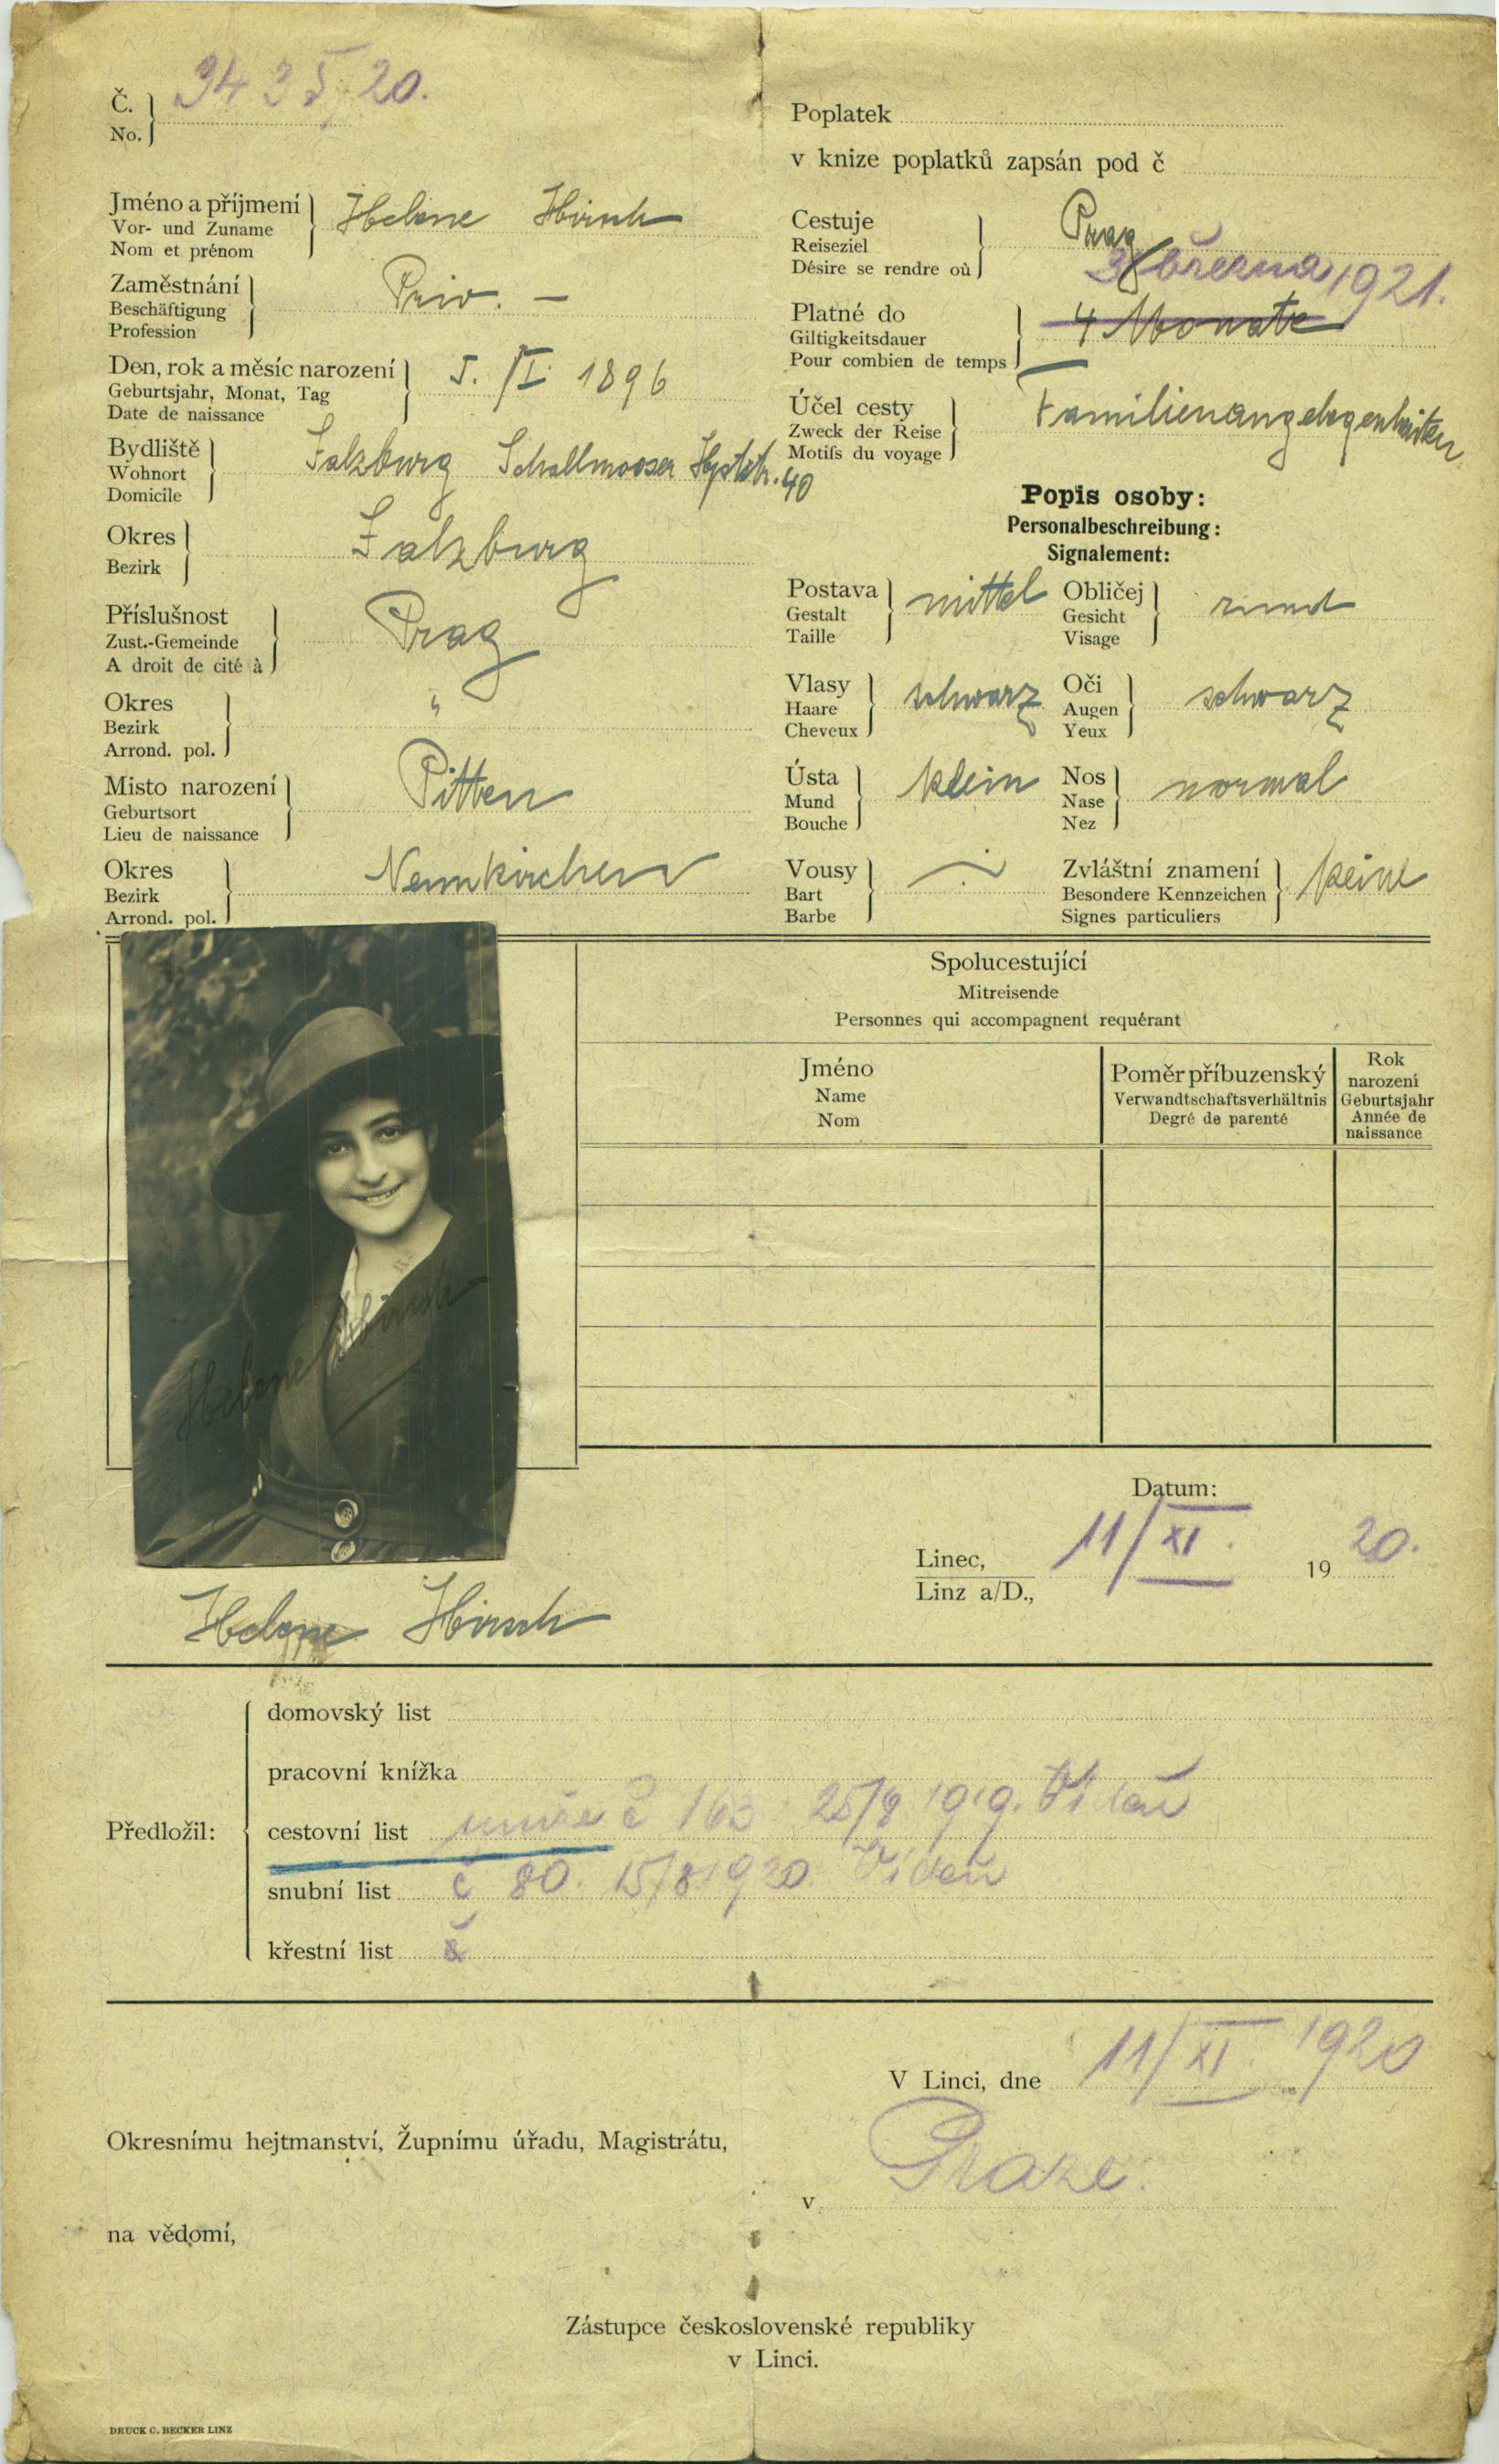 Č. No. 20.
Jméno a příjmení
Vor- und Zuname
Nom et prénom
Helene Hirsch
Zaměstnání
Beschäftigung
Profession
Priv. —
Den, rok a měsíc narození
Geburtsjahr, Monat, Tag
Date de naissance
5. /I. 1896
Bydliště
Wohnort
Domicile
Salzburg Schallmooser Hptstr. 40
Okres
Bezirk
Salzburg
Příslušnost
Zust.-Gemeinde
A droit de cité à
Prag
Okres
Bezirk
Arrond. pol.
"
Misto narození
Geburtsort
Lieu de naissance
Pitten
Okres
Bezirk
Arrond. pol.
Neunkirchen
Poplatek
v knize poplatků zapsán pod č
Cestuje
Reiseziel
Désire se rendre où
Prag
března 1921.
Platné do
Giltigkeitsdauer
Pour combien de temps
4 Monate
Účel cesty
Zweck der Reise
Motifs du voyage
Familienangelegenheiten
Popis osoby:
Personalbeschreibung:
Signalement:
Postava
Gestalt
Taille
mittel
Obličej
Gesicht
Visage
rund
Vlasy
Haare
Cheveux
schwarz
Oči
Augen
Yeux
schwarz
Ústa
Mund
Bouche
klein
Nos
Nase
Nez
normal
Vousy
Bart
Barbe
Zvláštní znamení
Besondere Kennzeichen
Signes particuliers
keine
Spolucestující
Mitreisende
Personnes qui accompagnent requérant
Jméno
Name
Nom
Poměr příbuzenský
Verwandtschaftsverhältnis
Degré de parenté
Rok
narození
Geburtsjahr
Année de
naissance
Helene Hirsch
Helene Hirsch
Datum:
Linec,
Linz a/D.,
11/XI. 1920.
Předložil:
domovský list
pracovní knížka
cestovní list č 163 1919. Vídeň
snubní list č 80. 15/8 1920 Vídeň
křestní list
V Linci, dne 11/XI. 1920
Okresnímu hejtmanství, Župnímu úřadu, Magistrátu,
v Praze.
na vědomí,
Zástupce československé republiky
v Linci.
DRUCK C. BECKER LINZ